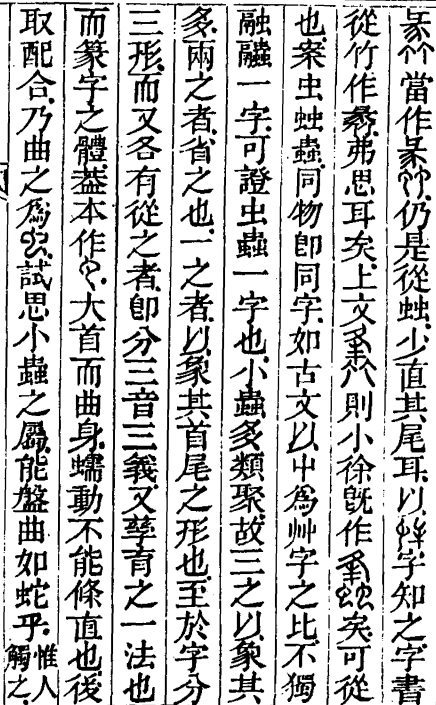 當作仍是從䖵少直其尾耳以字知之字書
從竹作彝弗思耳矣上文則小徐旣作矣可從
也案虫䖵蟲同物卽同字如古文以屮爲艸字之比不獨
融䗝一字可證虫蟲一字也小蟲多類聚故三之以象其
多兩之者省之也一之者以象其首尾之形也至於字分
三形而又各有從之者卽分三音三義又孳育之一法也
而篆字之體葢本作大首而曲身蠕動不能條直也後
取配合乃曲之爲試思小蟲之屬能盤曲如蛇乎惟人
觸之